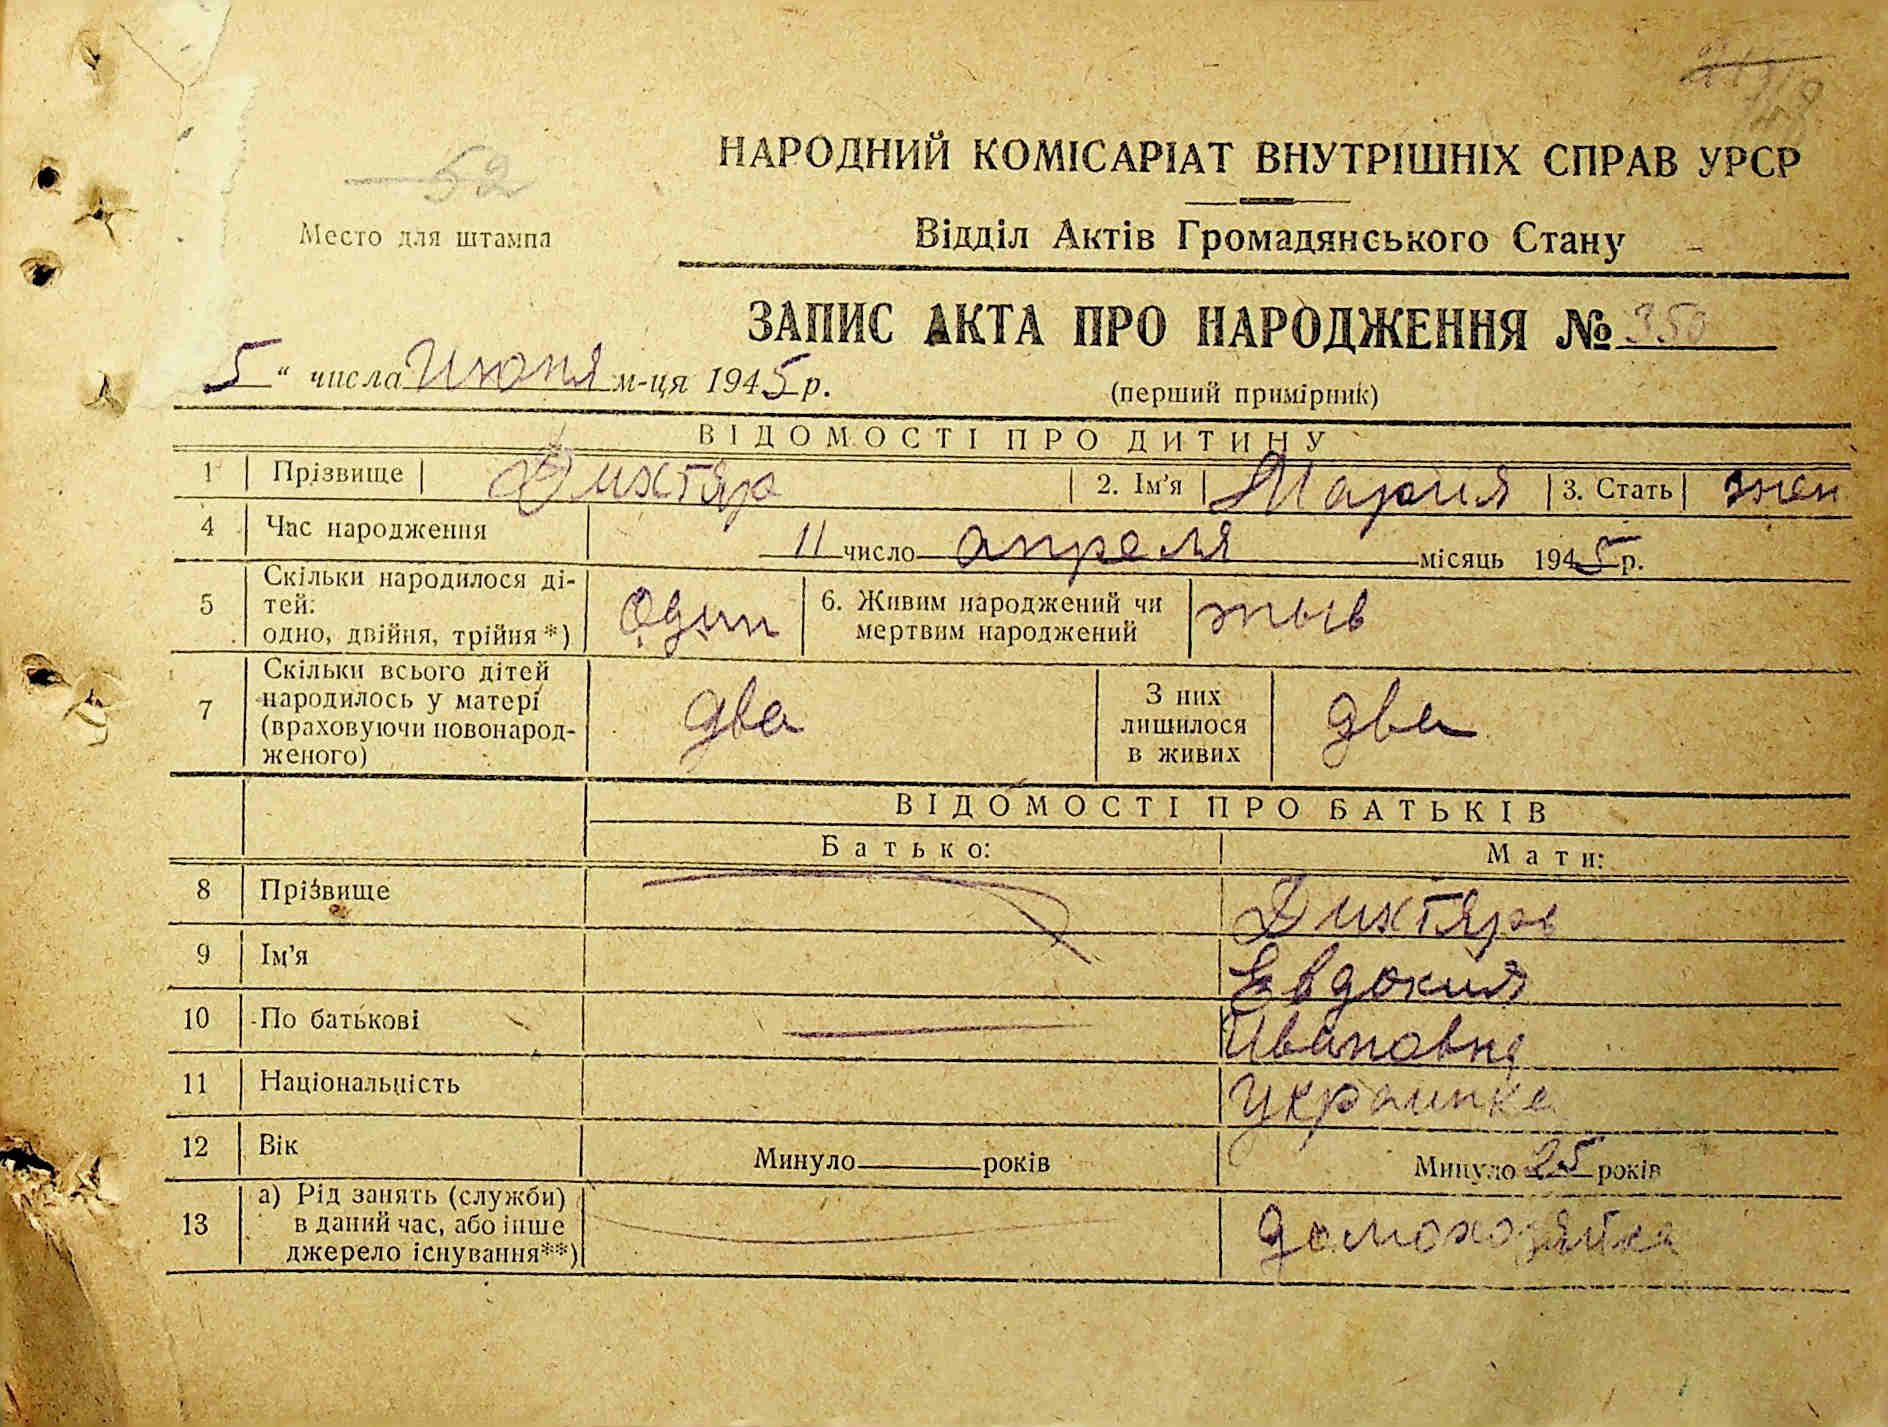 52
НАРОДНИЙ КОМІСАРІАТ ВНУТРІШНІХ СПРАВ УРСР
Место для штампа
Відділ Актів Громадянського Стану
ЗАПИС АКТА ПРО НАРОДЖЕННЯ № 350
5 " числа Июня м-ця 1945 р.
(перший примірник)
ВІДОМОСТІ ПРО ДИТИНУ
1 Прізвище Дихтяр 2. Ім'я Мария 3. Стать жен
4 Час народження 11 число апреля місяць 1945 р.
5 Скільки народилося ді-
тей:
одно, двійня, трійня *) Один 6. Живим народжений чи
мертвим народжений жыв
7 Скільки всього дітей
народилось у матері
(враховуючи новонарод-
женого) два З них
лишилося
в живих два
ВІДОМОСТІ ПРО БАТЬКІВ
Батько: Мати:
8 Прізвище Дихтярь
9 Ім'я Евдокия
10 По батькові Ивановна
11 Національність Украинка
12 Вік Минуло років Минуло 25 років
13 а) Рід занять (служби)
в даний час, або інше
джерело існування**) домохозяйка